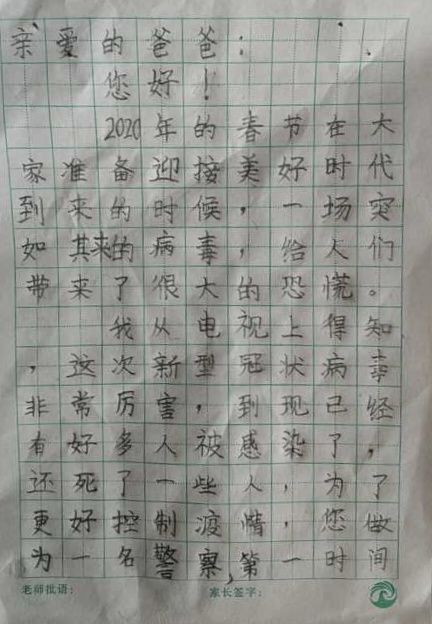 亲爱的爸爸：
您好！
2020年的春节在大
家准备迎接美好时代
到来的时候，一场突
如其来的病毒，给人们
带来了很大的恐慌。
我从电视上得知
，这次新型冠状病毒
非常厉害，到现已经，
有好多人被感染了，
还死了一些人，为了
更好控制渡情，您做
为一名警察，第一时间
老师批语：
家长签字：